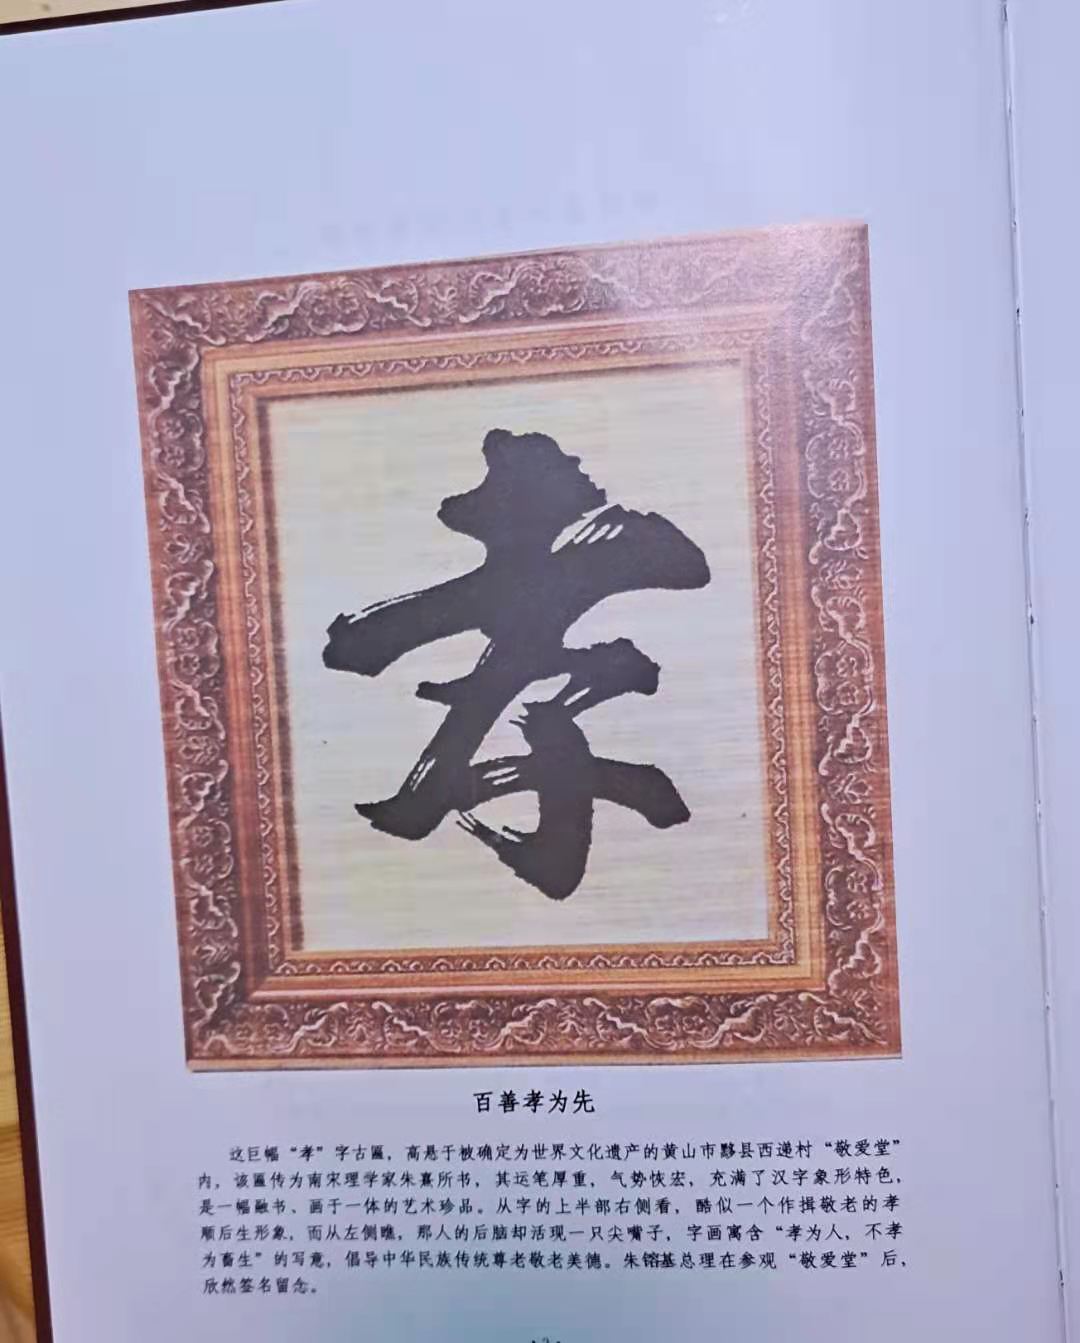 孝
百善孝为先
这巨幅“孝”字古匾，高悬于被确定为世界文化遗产的黄山市黟县西递村“敬爱堂”
内，该匾传为南宋理学家朱熹所书，其运笔厚重，气势恢宏，充满了汉字象形特色，
是一幅融书、画于一体的艺术珍品。从字的上半部右侧看，酷似一个作揖敬老的孝
顺后生形象，而从左侧瞧，那人的后脑却活现一只尖嘴子，字画寓含“孝为人，不孝
为畜生”的写意，倡导中华民族传统尊老敬老美德。朱镕基总理在参观“敬爱堂”后，
欣然签名留念。